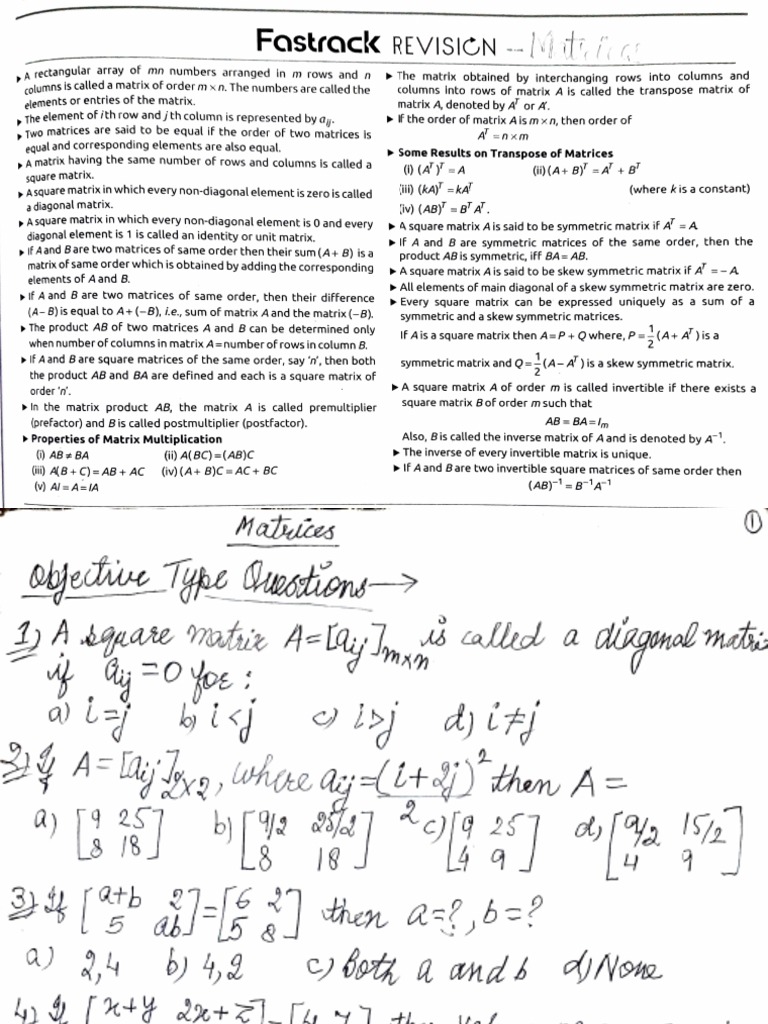 Fastrack REVISION -- Matrices
▸ A rectangular array of mn numbers arranged in m rows and n
columns is called a matrix of order m × n. The numbers are called the
elements or entries of the matrix.
▸ The element of ith row and jth column is represented by aᵢⱼ.
▸ Two matrices are said to be equal if the order of two matrices is
equal and corresponding elements are also equal.
▸ A matrix having the same number of rows and columns is called a
square matrix.
▸ A square matrix in which every non-diagonal element is zero is called
a diagonal matrix.
▸ A square matrix in which every non-diagonal element is 0 and every
diagonal element is 1 is called an identity or unit matrix.
▸ If A and B are two matrices of same order then their sum (A + B) is a
matrix of same order which is obtained by adding the corresponding
elements of A and B.
▸ If A and B are two matrices of same order, then their difference
(A – B) is equal to A + (–B), i.e., sum of matrix A and the matrix (–B).
▸ The product AB of two matrices A and B can be determined only
when number of columns in matrix A = number of rows in column B.
▸ If A and B are square matrices of the same order, say 'n', then both
the product AB and BA are defined and each is a square matrix of
order 'n'.
▸ In the matrix product AB, the matrix A is called premultiplier
(prefactor) and B is called postmultiplier (postfactor).
▸ Properties of Matrix Multiplication
(i) AB ≠ BA (ii) A(BC) = (AB)C
(iii) A(B + C) = AB + AC (iv) (A + B)C = AC + BC
(v) AI = A = IA
▸ The matrix obtained by interchanging rows into columns and
columns into rows of matrix A is called the transpose matrix of
matrix A, denoted by Aᵀ or A'.
▸ If the order of matrix A is m × n, then order of
Aᵀ = n × m
▸ Some Results on Transpose of Matrices
(i) (Aᵀ)ᵀ = A (ii) (A + B)ᵀ = Aᵀ + Bᵀ
(iii) (kA)ᵀ = kAᵀ (where k is a constant)
(iv) (AB)ᵀ = BᵀAᵀ.
▸ A square matrix A is said to be symmetric matrix if Aᵀ = A.
▸ If A and B are symmetric matrices of the same order, then the
product AB is symmetric, iff BA = AB.
▸ A square matrix A is said to be skew symmetric matrix if Aᵀ = – A.
▸ All elements of main diagonal of a skew symmetric matrix are zero.
▸ Every square matrix can be expressed uniquely as a sum of a
symmetric and a skew symmetric matrices.
If A is a square matrix then A = P + Q where, P = 1/2 (A + Aᵀ) is a
symmetric matrix and Q = 1/2 (A – Aᵀ) is a skew symmetric matrix.
▸ A square matrix A of order m is called invertible if there exists a
square matrix B of order m such that
AB = BA = Iₘ
Also, B is called the inverse matrix of A and is denoted by A⁻¹.
▸ The inverse of every invertible matrix is unique.
▸ If A and B are two invertible square matrices of same order then
(AB)⁻¹ = B⁻¹A⁻¹
Matrices ①
Objective Type Questions →
1) A square matrix A = [aij]m×n is called a diagonal matrix
if aij = 0 for :
a) i=j b) i<j c) i>j d) i≠j
2) If A = [aij]2×2, where aij = (i+2j)²/2 then A =
a) [9 25 b) [9/2 25/2 c) [9 25 d) [9/2 15/2
8 18] 8 18] 4 9] 4 9]
3) If [a+b 2 = [6 2 then a=?, b=?
5 ab] 5 8]
a) 2,4 b) 4,2 c) Both a and b d) None
4) If [x+y 2x+z] = [4 7]